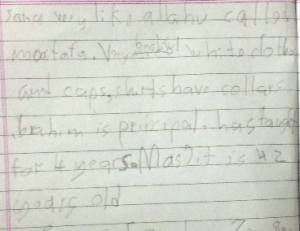 very like allahu called
mostafa. Very white cloths
and caps, shirts have collar.
ibrahim is principal. has taught
for 4 years. Masjit is 42
years old